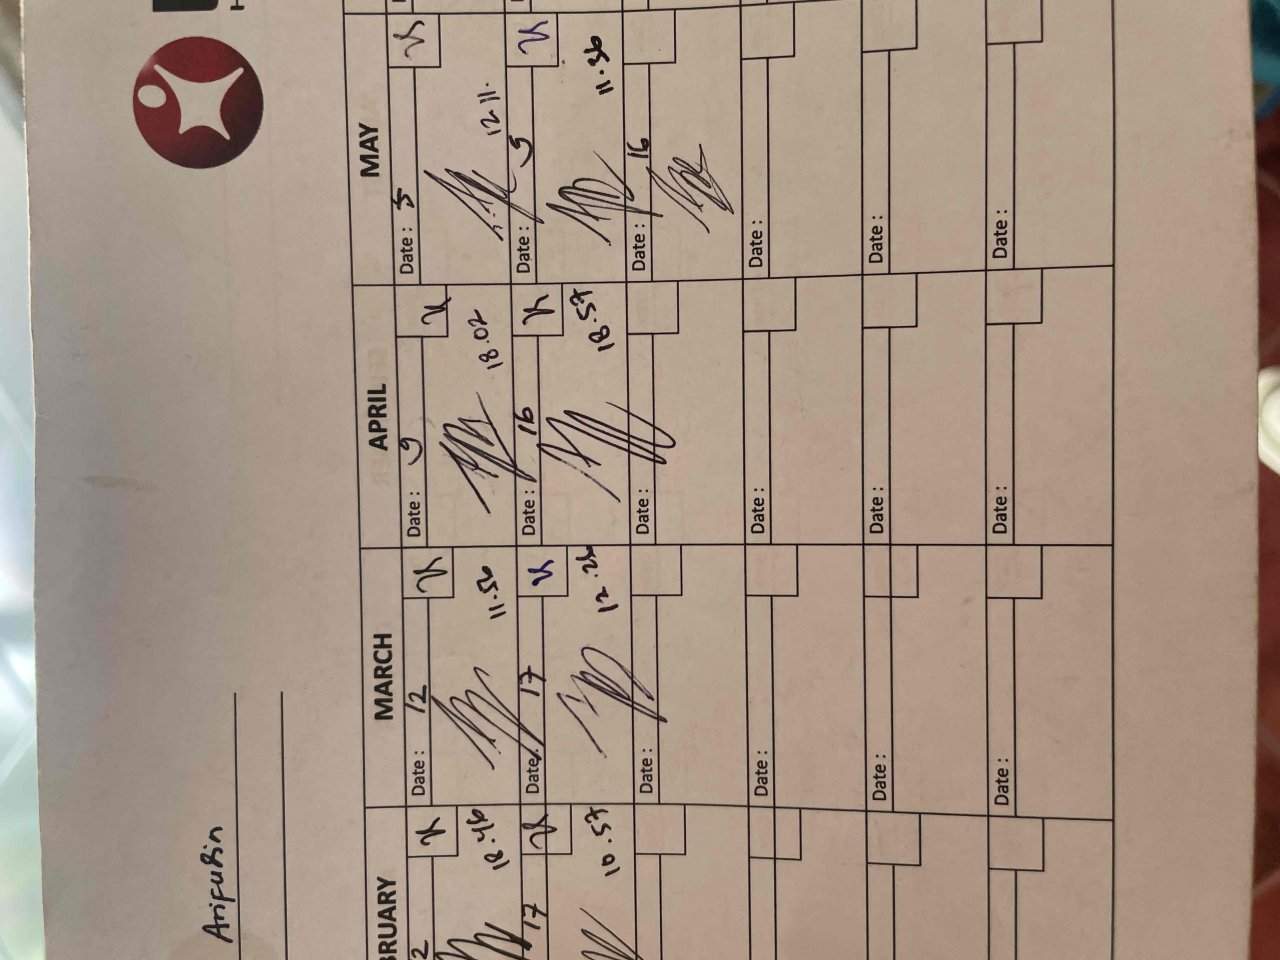 Arifudin
BRUARY MARCH APRIL MAY
2 Date : 12 Date : 9 Date : 5
18.46 11.56 18.02 12 11.
17 Date : 17 Date : 16 Date : 9
10.57 18.57 11.36
Date : Date : Date : 16
Date : Date : Date :
Date : Date : Date :
Date : Date : Date :